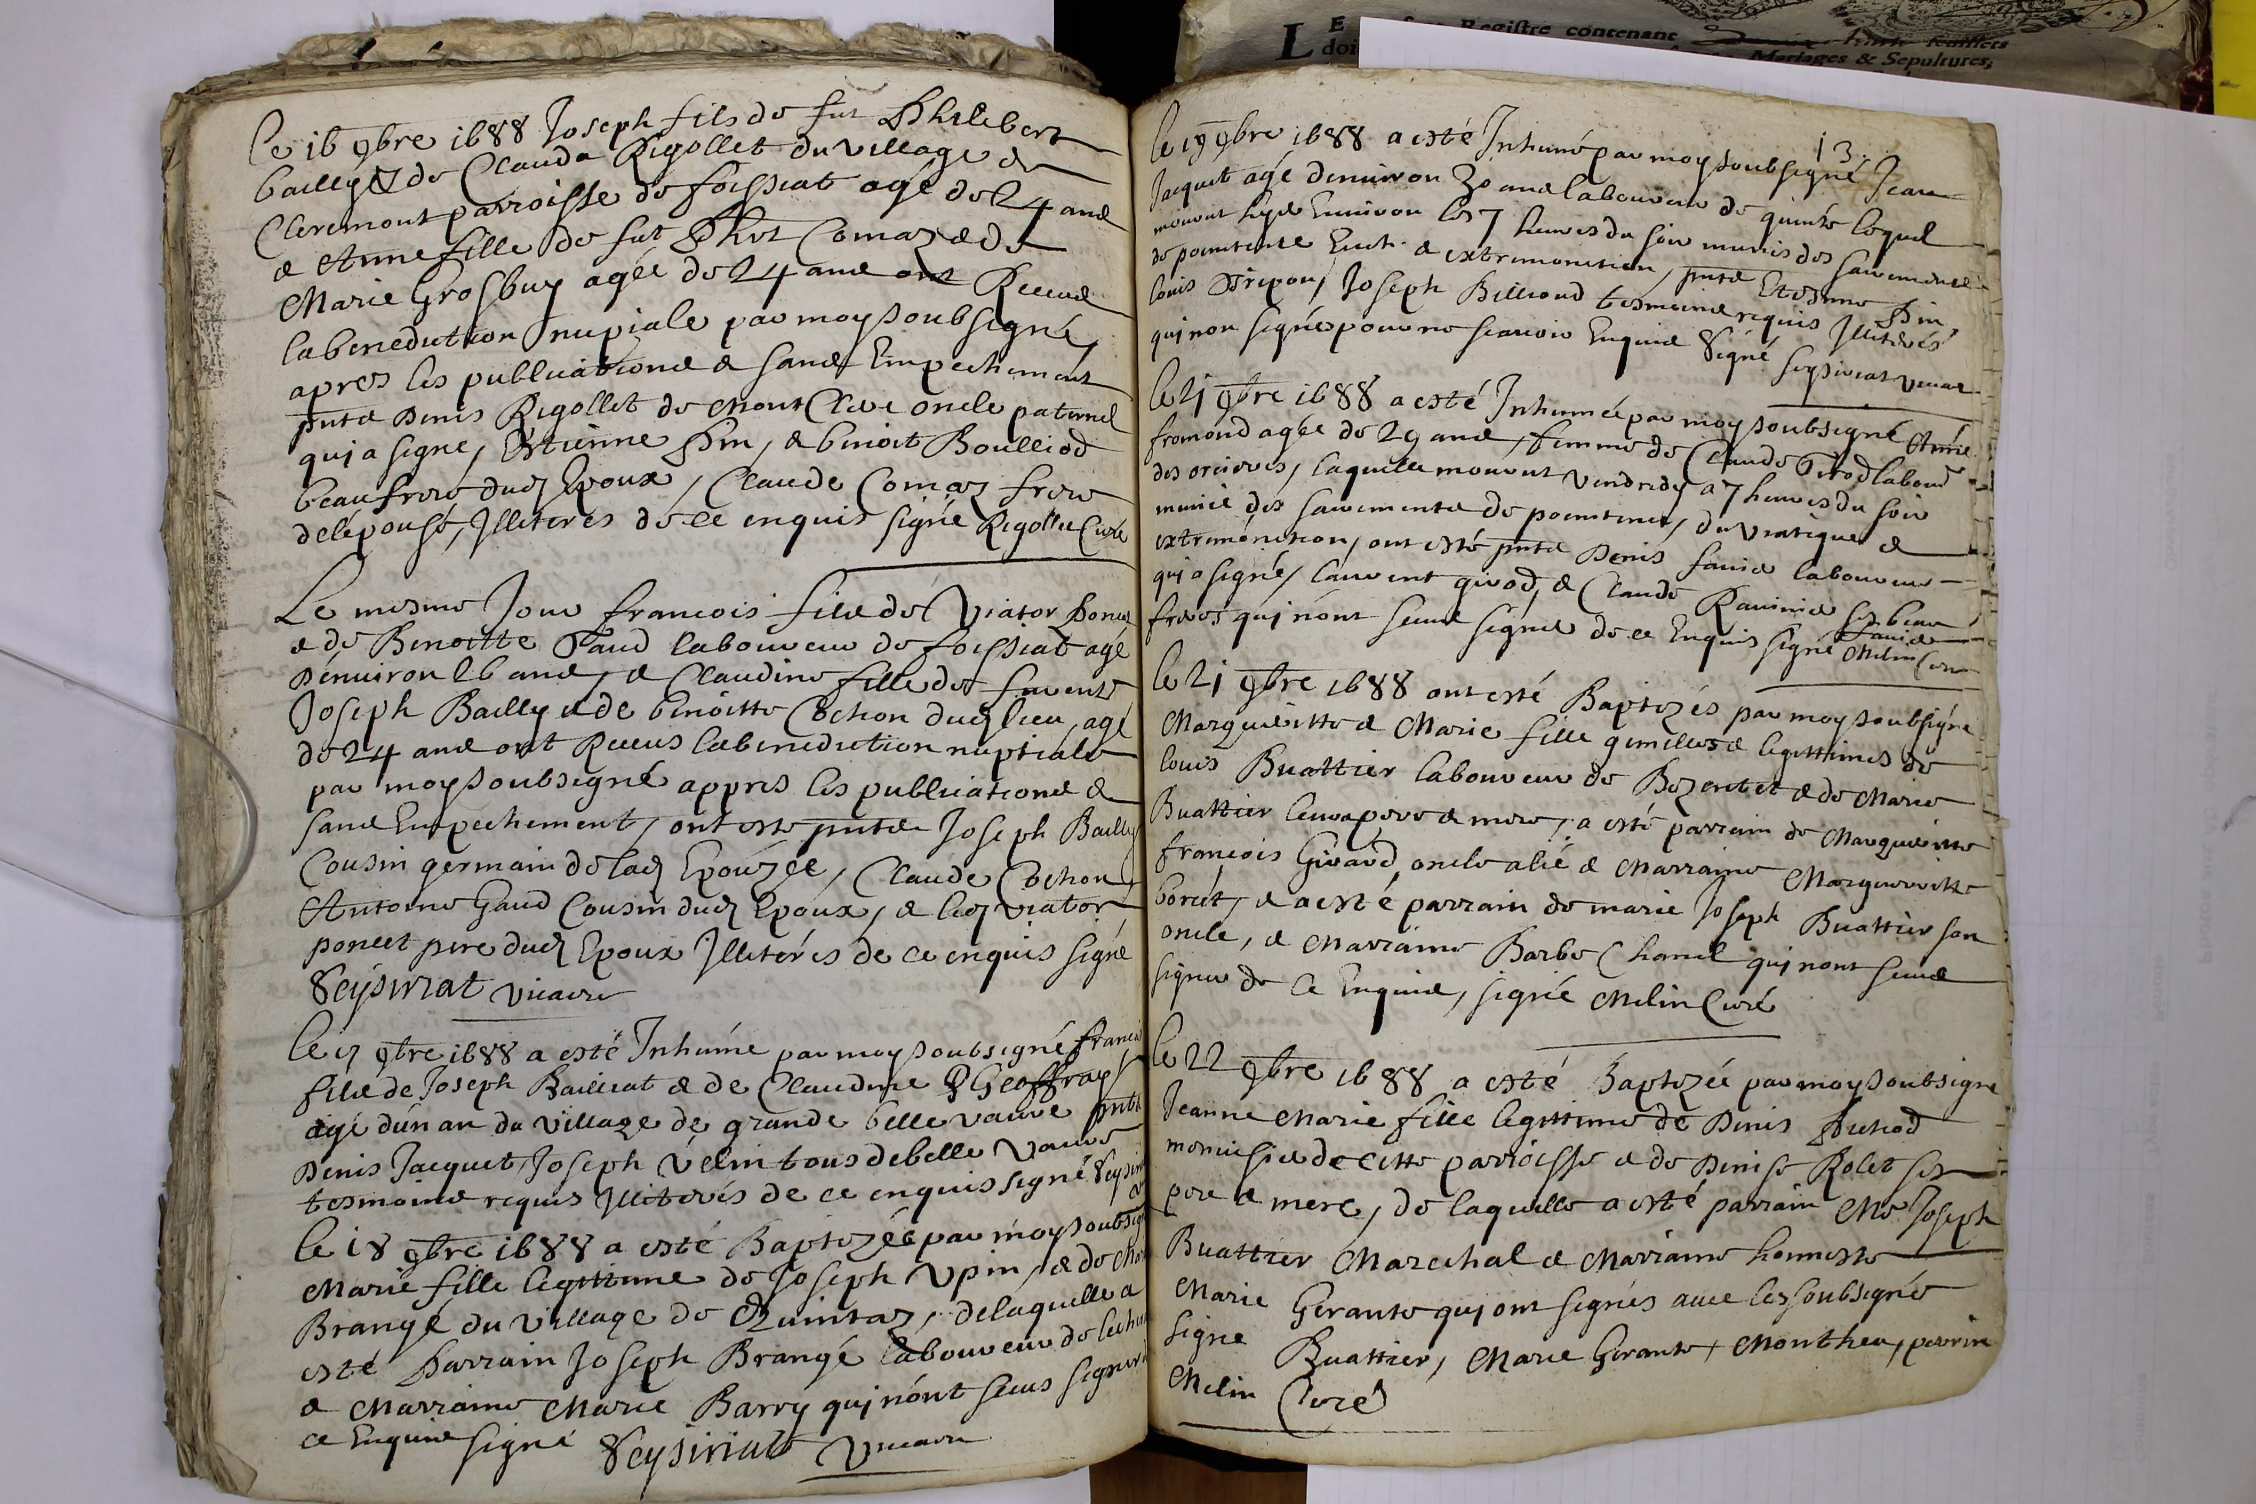 Le 16 9bre 1688 Joseph fils de fut Philibert
Bailly & de Clauda Rigollet du village de
Cleremont parroisse de foissiat agé de 24 ans
& Anne fille de fut Phet Comaz & de
Marie Grosbuy agée de 24 ans ont Receus
la benediction nupiale par moy soubsigné
apres les publications & sans Empechement
pnts Denis Rigollet de Mont Clere oncle paternel
qui a signe, Estienne Pin, & benoit Boulliod
beaufrere dud Epoux, Claude Comaz frere
de lépouse, Illiterés de ce enquis signé Rigollet Curé
Le mesme Jour francois fils de Viator Poncet
& de Benoitte Gaud laboureur de foissiat agé
Denuiron 26 ans, & Claudine fille de
Joseph Bailly & de benoitte Cochon dud lieu, agé
de 24 ans ont Receus la benediction nuptiale
par moy soubsigné appres les publications &
sans Empechement, ont esté pnts Joseph Bailly
Cousin germain de lad Epouzée, Claude Cochon
Antoine Gaud Cousin dud Epoux, & led viator
poncet pere dud Epoux Illiterés de ce enquis signé
Seysiriat vicaire
Le 17 9bre 1688 a esté Inhumé par moy soubsigné francois
fils de Joseph Bailliat & de Claudine Geoffray
agé dún an du village de grande belle vavre pnts
Denis Jacquet, Joseph Velin tous de belle vavre
tesmoins requis Illiterés de ce enquis signé
Le 18 9bre 1688 a esté Baptozée par moy soubsig
Marie fille legittime de Joseph Vpin, & de
Brangé du village de Quintaz, de laquelle a
esté Parrain Joseph Brangé laboureur de
& Marraine Marie Barry qui nónt seus signer
ce Enquis signé Seysiriat Vicaire
13
le 19 9bre 1688 a esté Inhumé par moy soubsigné Jean
Jacquet agé denuiron 30 ans laboureur de quinte lequel
mourut hyer Enuiron les 7 heures du soir munis des sacrements
de poenitence Euch. & extremonction, pnts Etienne Pin,
louis Tripoz, Joseph Billioud tesmoins requis Illiterés
qui non signés pour ne scauoir Enquis Signé Seysiriat vicaire
le 21 9bre 1688 a esté Inhumée par moy soubsigné Anne
fromond agée de 29 ans, femme de Claude Tirod labour
des orcieres, laquelle mourut vendredy a 7 heures du soir
munie des sacrements de poenitence, du viatique &
extremónction, ont esté pnts Denis fauie laboureur
qui a signé, laurent girod, & Claude Rauinie ses beau
freres qui nónt seus signer de ce Enquis signé fauie
Melin Curé
le 21 9bre 1688 ont esté Baptozés par moy soubsigné
Marguéritte & Marie fille gemelles & legittimes de
louis Buattier laboureur de Bezentet & de Marie
Buattier leurs pere & mere, a esté parrain de Marguéritte
francois Girard, oncle alié & Marraine Marguerite
boret, & a esté parrain de marie Joseph Buattier son
oncle, & Marraine Barbe Chanel qui nont seus
signer de Ce Enquis, signé Melin Curé
le 22 9bre 1688 a esté Baptozée par moy soubsigne
Jeanne Marie fille legittime de Denis
de cette parroisse & de Denise Rolet ses
pere & mere, de laquelle a esté parrain Me Joseph
Buattier Marechal & Marraine honneste
Marie Gerante qui ont signés auec les soubsignés
signe Buattier, Marie Gerante, Montheu, perrin
Melin Curé